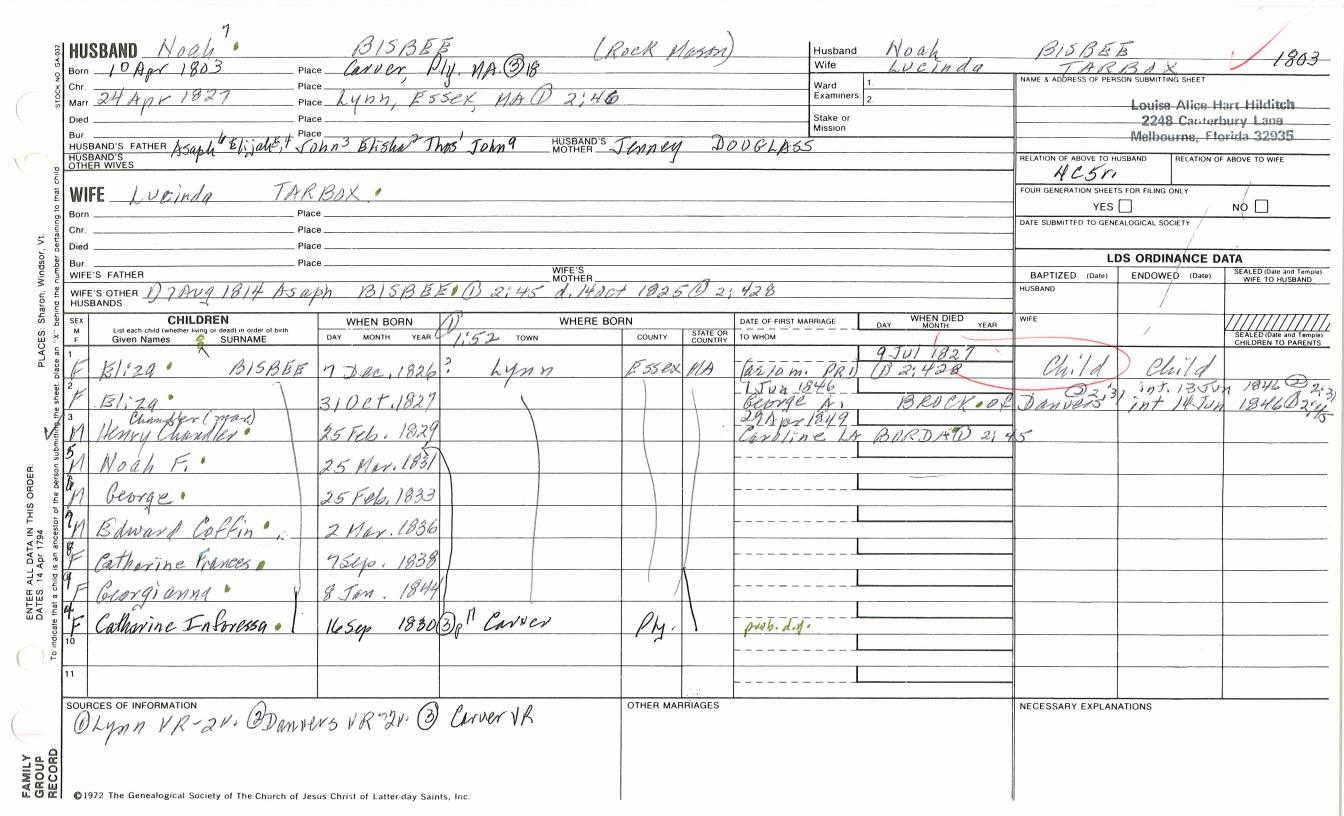 7
HUSBAND Noah BISBEE (Rock Mason)
Born 10 Apr 1803 Place Carver, Ply. MA. ③ 18
Chr. Place
Marr 24 Apr 1827 Place Lynn, Essex, MA ① 2:46
Died Place
Bur Place
HUSBAND'S FATHER Asaph 6 Elijah 5,4 John 3 Elisha 2 Thos 1 John a HUSBAND'S MOTHER Jenney DOUGLASS
HUSBAND'S OTHER WIVES
WIFE Lucinda TARBOX
Born Place
Chr. Place
Died Place
Bur. Place
WIFE'S FATHER WIFE'S MOTHER
WIFE'S OTHER HUSBANDS 1) 7 Aug 1814 Asaph BISBEE ① 2:45 d. 14 Oct 1825 ① 2:428
Husband Noah BISBEE 1803
Wife Lucinda TARBOX
Ward Examiners 1. 2.
Stake or Mission
NAME & ADDRESS OF PERSON SUBMITTING SHEET
Louise Alice Hart Hilditch
2248 Canterbury Lane
Melbourne, Florida 32935
RELATION OF ABOVE TO HUSBAND RELATION OF ABOVE TO WIFE
4C5r.
FOUR GENERATION SHEETS FOR FILING ONLY
YES NO
DATE SUBMITTED TO GENEALOGICAL SOCIETY
LDS ORDINANCE DATA
BAPTIZED (Date) ENDOWED (Date) SEALED (Date and Temple) WIFE TO HUSBAND
HUSBAND
WIFE
SEALED (Date and Temple) CHILDREN TO PARENTS
SEX M F CHILDREN WHEN BORN WHERE BORN DATE OF FIRST MARRIAGE WHEN DIED
List each child (whether living or dead) in order of birth
Given Names SURNAME DAY MONTH YEAR ① 1:52 TOWN COUNTY STATE OR COUNTRY TO WHOM DAY MONTH YEAR
1 9 Jul 1827
F Eliza BISBEE 7 Dec. 1826? Lynn Essex MA (a·iom. PR1) ① 2:428 Child Child
2 1 Jun 1846 ② 2:31 int. 13 Jun 1846 ② 2:31
F Eliza 31 Oct. 1827 George A. BROCK of Danvers int 14 Jun 1846 ① 2:45
3 Chandler (mar) 29 Apr 1849
M Henry Chandler 25 Feb. 1829 Caroline LA BORDA ① 2:45
5 M Noah F. 25 Mar. 1831
6 M George 25 Feb. 1833
7 M Edward Coffin 2 Mar. 1836
8 F Catharine Frances 7 Sep. 1838
9 F Georgianna 8 Jan. 1844
4 F Catharine Inforessa 16 Sep 1830 ③ p 17 Carver Ply. prob. d.y.
10
11
SOURCES OF INFORMATION OTHER MARRIAGES NECESSARY EXPLANATIONS
① Lynn VR-2v. ② Danvers VR-2v. ③ Carver VR
©1972 The Genealogical Society of The Church of Jesus Christ of Latter-day Saints, Inc.
STOCK NO. GA-032
To indicate that a child is an ancestor of the person submitting the sheet, place an "X" behind the number pertaining to that child
ENTER ALL DATA IN THIS ORDER:
DATES: 14 Apr 1794 PLACES: Sharon, Windsor, Vt.
FAMILY GROUP RECORD